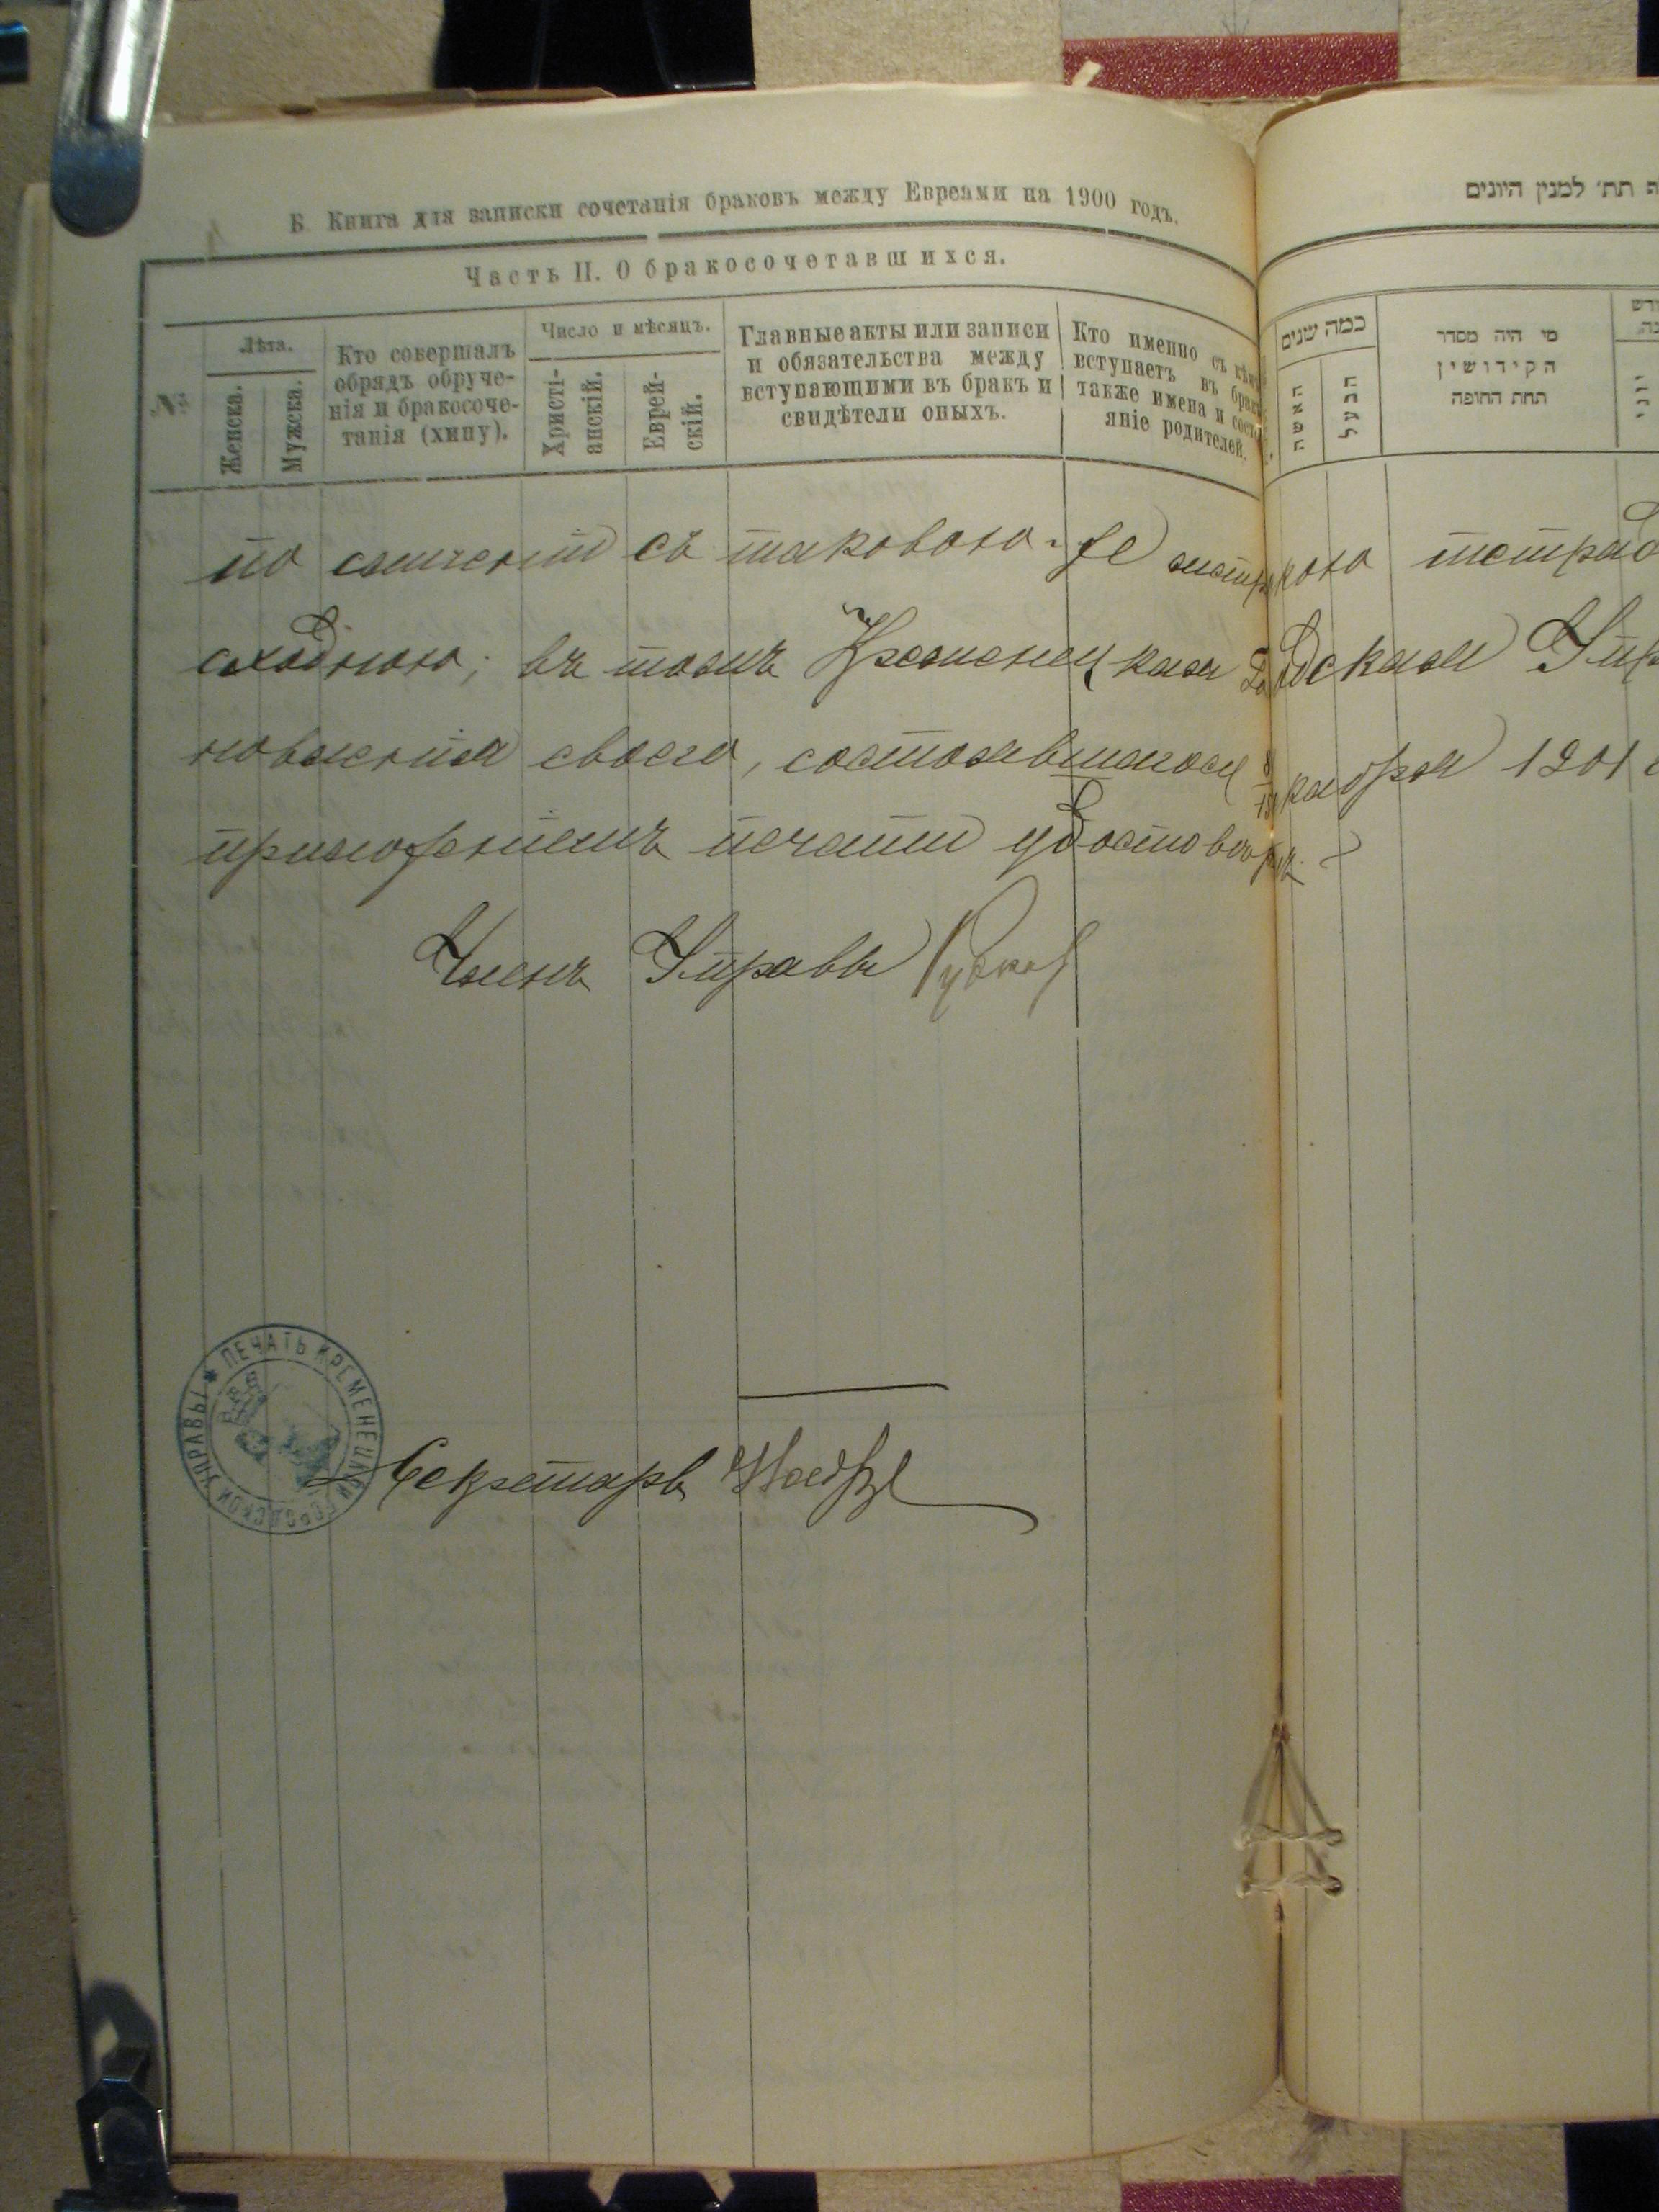 Б. Книга для записки сочетанія браковъ между Евреями на 1900 годъ.
Часть II. О бракосочетавшихся.
№
Лѣта.
Женска.
Мужска.
Кто совершалъ
обрядъ обруче-
нія и бракосоче-
танія (хипу).
Число и мѣсяцъ.
Христі-
анскій.
Еврей-
скій.
Главные акты или записи
и обязательства между
вступающими въ бракъ и
свидѣтели оныхъ.
Кто именно съ кѣмъ
вступаетъ въ бракъ
также имена и состо-
яніе родителей.
תת׳ למנין היונים
כמה שנים
האשה
הבעל
מי היה מסדר
הקידושין
תחת החופה
יוני
по сличеніи съ таковою-же метрикою тетрад
сходною; въ томъ Кременецкая Городская Упр
новленія своего, состоявшагося кабря 1901
приложеніемъ печати удостовѣр
Членъ Управы
ПЕЧАТЬ КРЕМЕНЕЦКОЙ ГОРОДСКОЙ УПРАВЫ
Секретарь